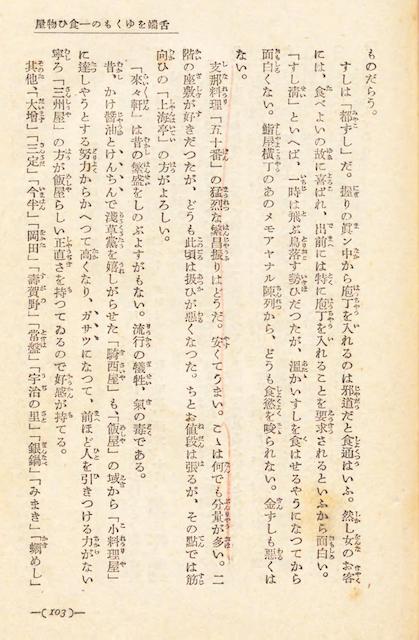 舌端をゆくもの―食ひ物屋
ものだらう。
すしは「都ずし」だ。握りの眞ン中から庖丁を入れるのは邪道だと食通はいふ。然し女のお客
には、食べよいの故に喜ばれ、出前には特に庖丁を入れることを要求されるといふから面白い。
「すし淸」といへば、一時は飛ぶ鳥落す勢ひだつたが、溫かいすしを食はせるやうになつてから
面白くない。鮨屋横丁のあのメモアヤナル陳列から、どうも食慾を唆られない。金ずしも惡くは
ない。
支那料理「五十番」の猛烈な繁昌振りはどうだ。安くてうまい。こゝは何でも分量が多い。二
階の座敷が好きだつたが、どうも此頃は扱ひが惡くなつた。ちとお値段は張るが、その點では筋
向ひの「上海亭」の方がよろしい。
「來々軒」は昔の繁盛をしのぶよすがもない。流行の犠牲、氣の毒である。
昔、かけ醬油とけんちんで淺草黨を嬉しがらせた「騎西屋」も「飯屋」の域から「小料理屋」
に達しやうとする努力からかへつて高くなり、ガサツになつて、前ほど人を引きつける力がない
寧ろ「三州屋」の方が飯屋らしい正直さを持つてゐるので好感が持てる。
其他、「大增」「三定」「今半」「岡田」「壽賀野」「常盤」「宇治の里」「銀鍋」「みまき」「鯛めし」
—(103)—